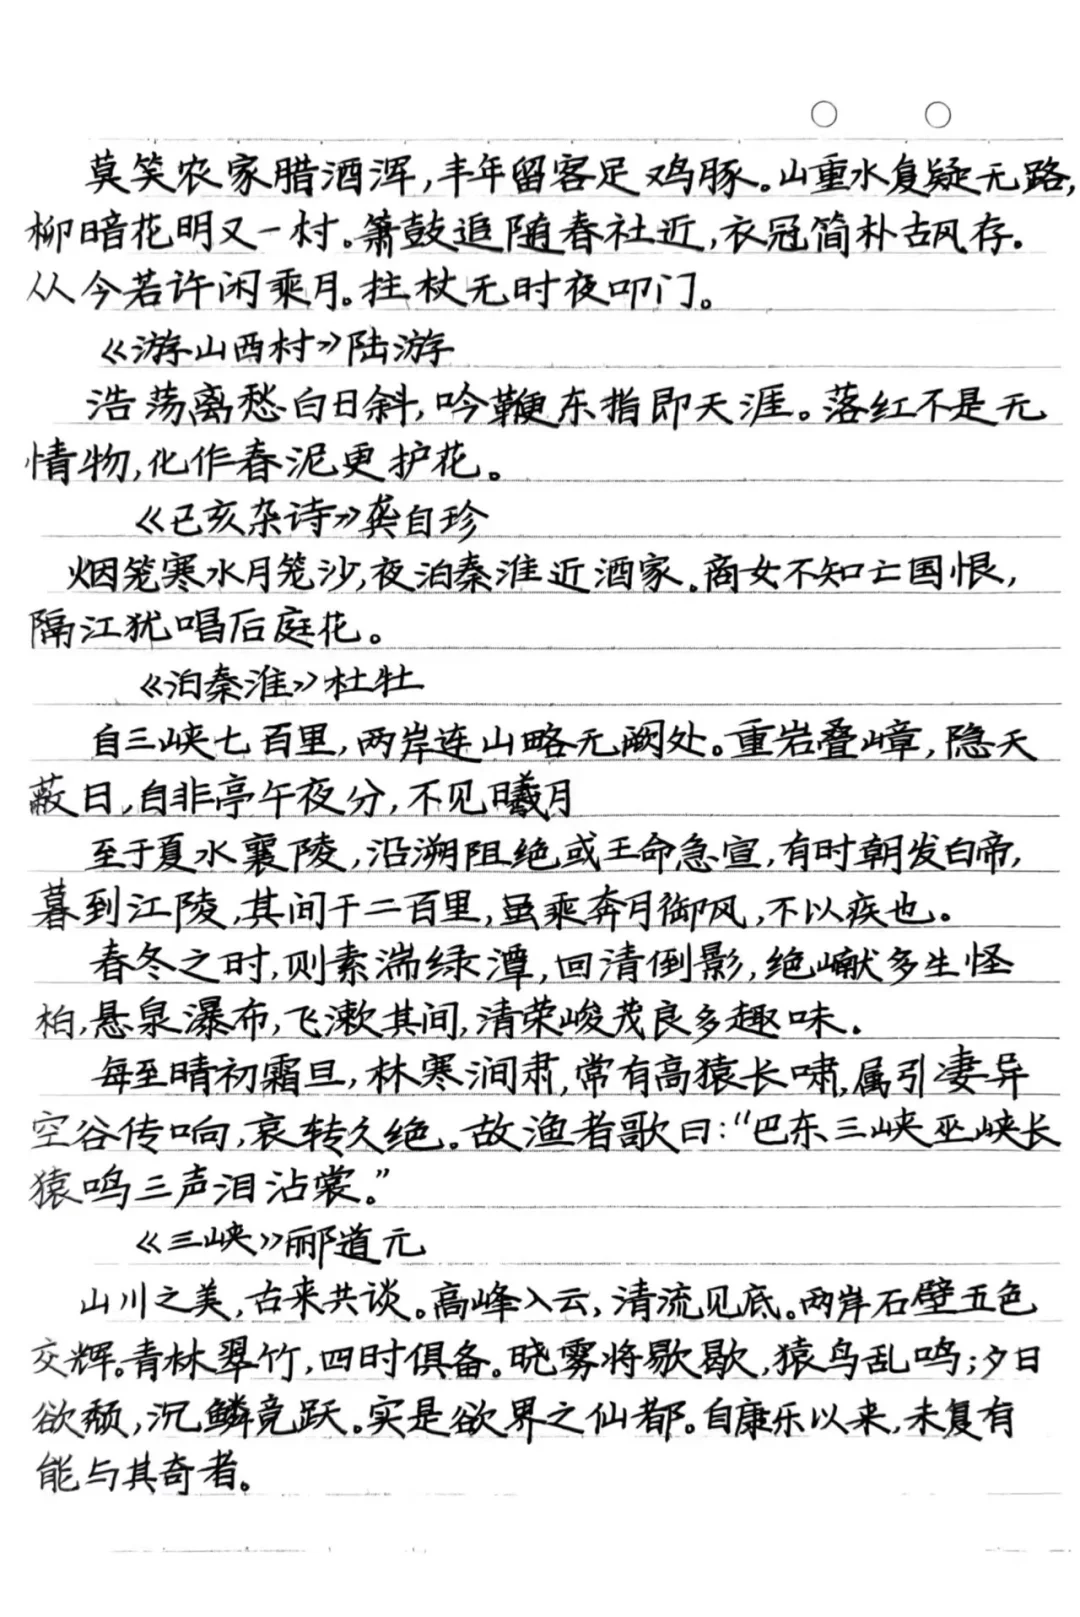 莫笑农家腊酒浑,丰年留客足鸡豚。山重水复疑无路,
柳暗花明又一村。箫鼓追随春社近,衣冠简朴古风存。
从今若许闲乘月。拄杖无时夜叩门。
《游山西村》陆游
浩荡离愁白日斜,吟鞭东指即天涯。落红不是无
情物,化作春泥更护花。
《己亥杂诗》龚自珍
烟笼寒水月笼沙,夜泊秦淮近酒家。商女不知亡国恨,
隔江犹唱后庭花。
《泊秦淮》杜牡
自三峡七百里,两岸连山略无阙处。重岩叠嶂,隐天
蔽日,自非亭午夜分,不见曦月
至于夏水襄陵,沿溯阻绝或王命急宣,有时朝发白帝,
暮到江陵,其间千二百里,虽乘奔月御风,不以疾也。
春冬之时,则素湍绿潭,回清倒影,绝巘多生怪
柏,悬泉瀑布,飞漱其间,清荣峻茂良多趣味。
每至晴初霜旦,林寒涧肃,常有高猿长啸,属引凄异
空谷传响,哀转久绝。故渔者歌曰:“巴东三峡巫峡长
猿鸣三声泪沾裳。”
《三峡》郦道元
山川之美,古来共谈。高峰入云,清流见底。两岸石壁五色
交辉。青林翠竹,四时俱备。晓雾将歇歇,猿鸟乱鸣;夕日
欲颓,沉鳞竞跃。实是欲界之仙都。自康乐以来,未复有
能与其奇者。